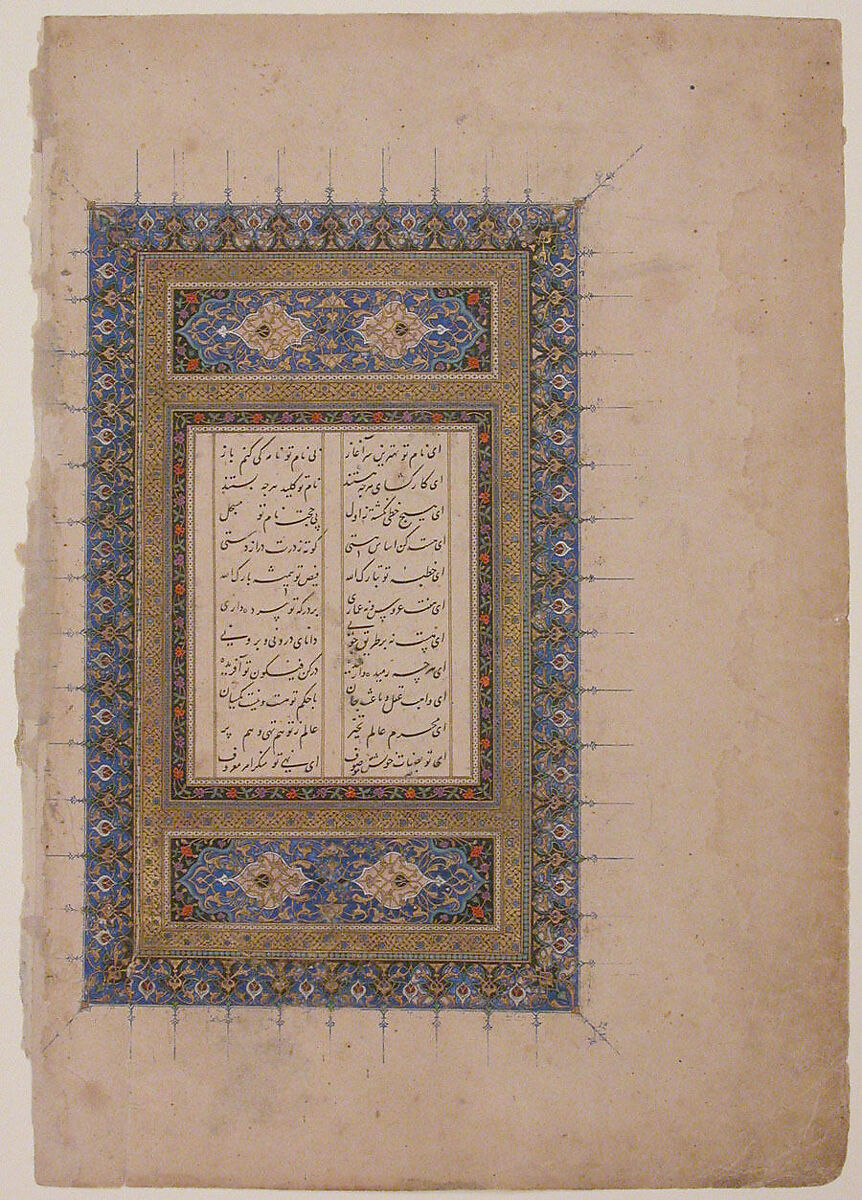 ای نام تو بهترین سرآغاز بی نام تو نامه کی کنم باز
ای کارگشای هرچه هستند نام تو کلید هرچه بستند
ای هیچ خطی نگشته ز اول بی حجت نام تو مسجل
ای هست کن اساس هستی کوته ز درت دراز دستی
ای خطبه تو تبارک الله فیض تو همیشه بارک الله
ای هفت عروس نه عماری بر درگه تو به پرده داری
ای هست نه بر طریق چونی دانای درونی و برونی
ای هرچه رمیده وارمیده در کن فیکون تو آفریده
ای واهب عقل و باعث جان با حکم تو هست و نیست یکسان
ای محرم عالم تحیر عالم ز تو هم تهی و هم پر
ای تو بصفات خویش موصوف ای نهی تو منکر امر معروف